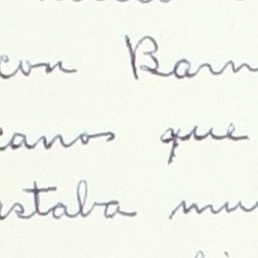 con Barn
canos que
estaba mu